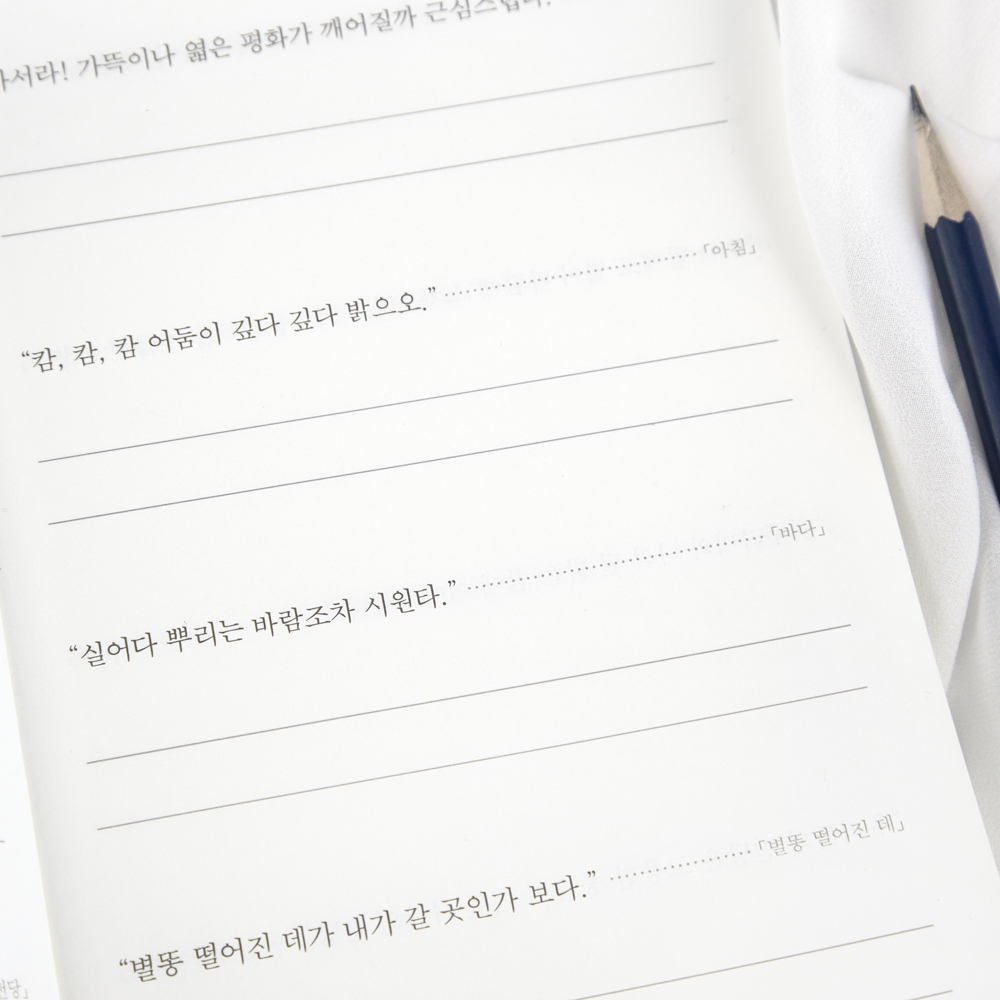 가뜩이나 엷은 평화가 깨어질까 근심스럽다.
“캄, 캄, 캄 어둠이 깊다 깊다 밝으오.” 「아침」
“실어다 뿌리는 바람조차 시원타.” 「바다」
“별똥 떨어진 데가 내가 갈 곳인가 보다.” 「별똥 떨어진 데」